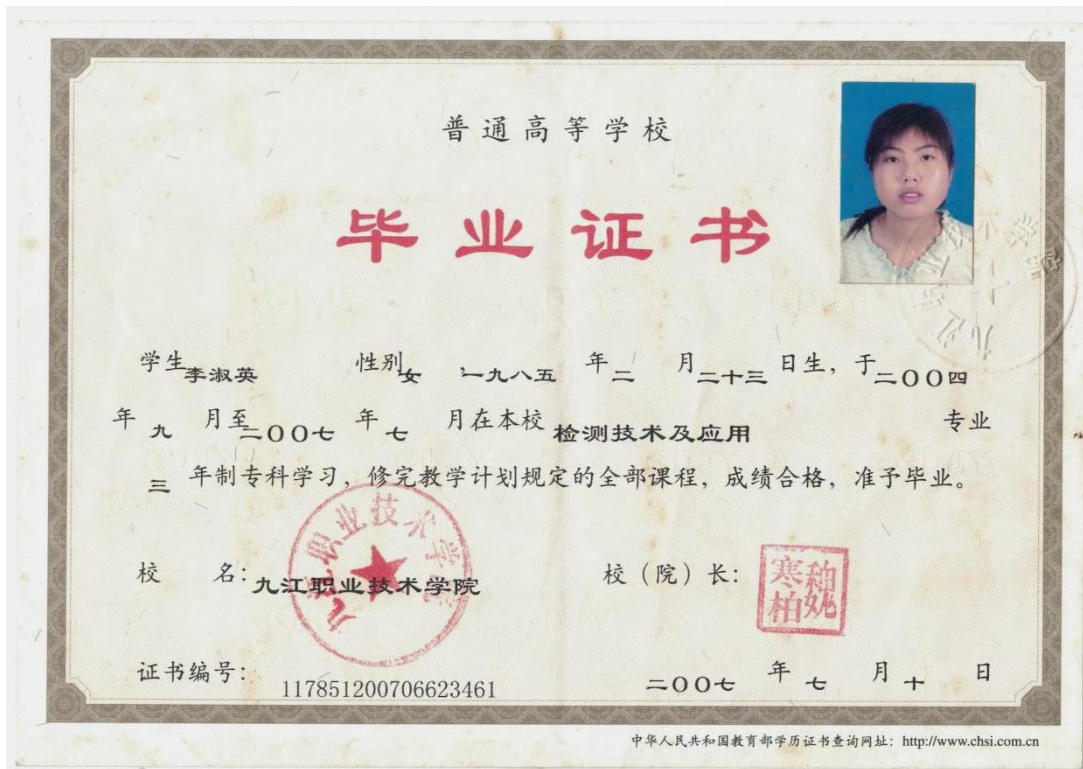 普通高等学校
毕业证书
学生李淑英 性别女 一九八五年二月二十三日生，于二00四
年九月至二00七年七月在本校检测技术及应用专业
三年制专科学习，修完教学计划规定的全部课程，成绩合格，准予毕业。
九江职业技术学院
校名：九江职业技术学院 校（院）长：
证书编号：117851200706623461 二00七年七月十日
中华人民共和国教育部学历证书查询网址：http://www.chsi.com.cn